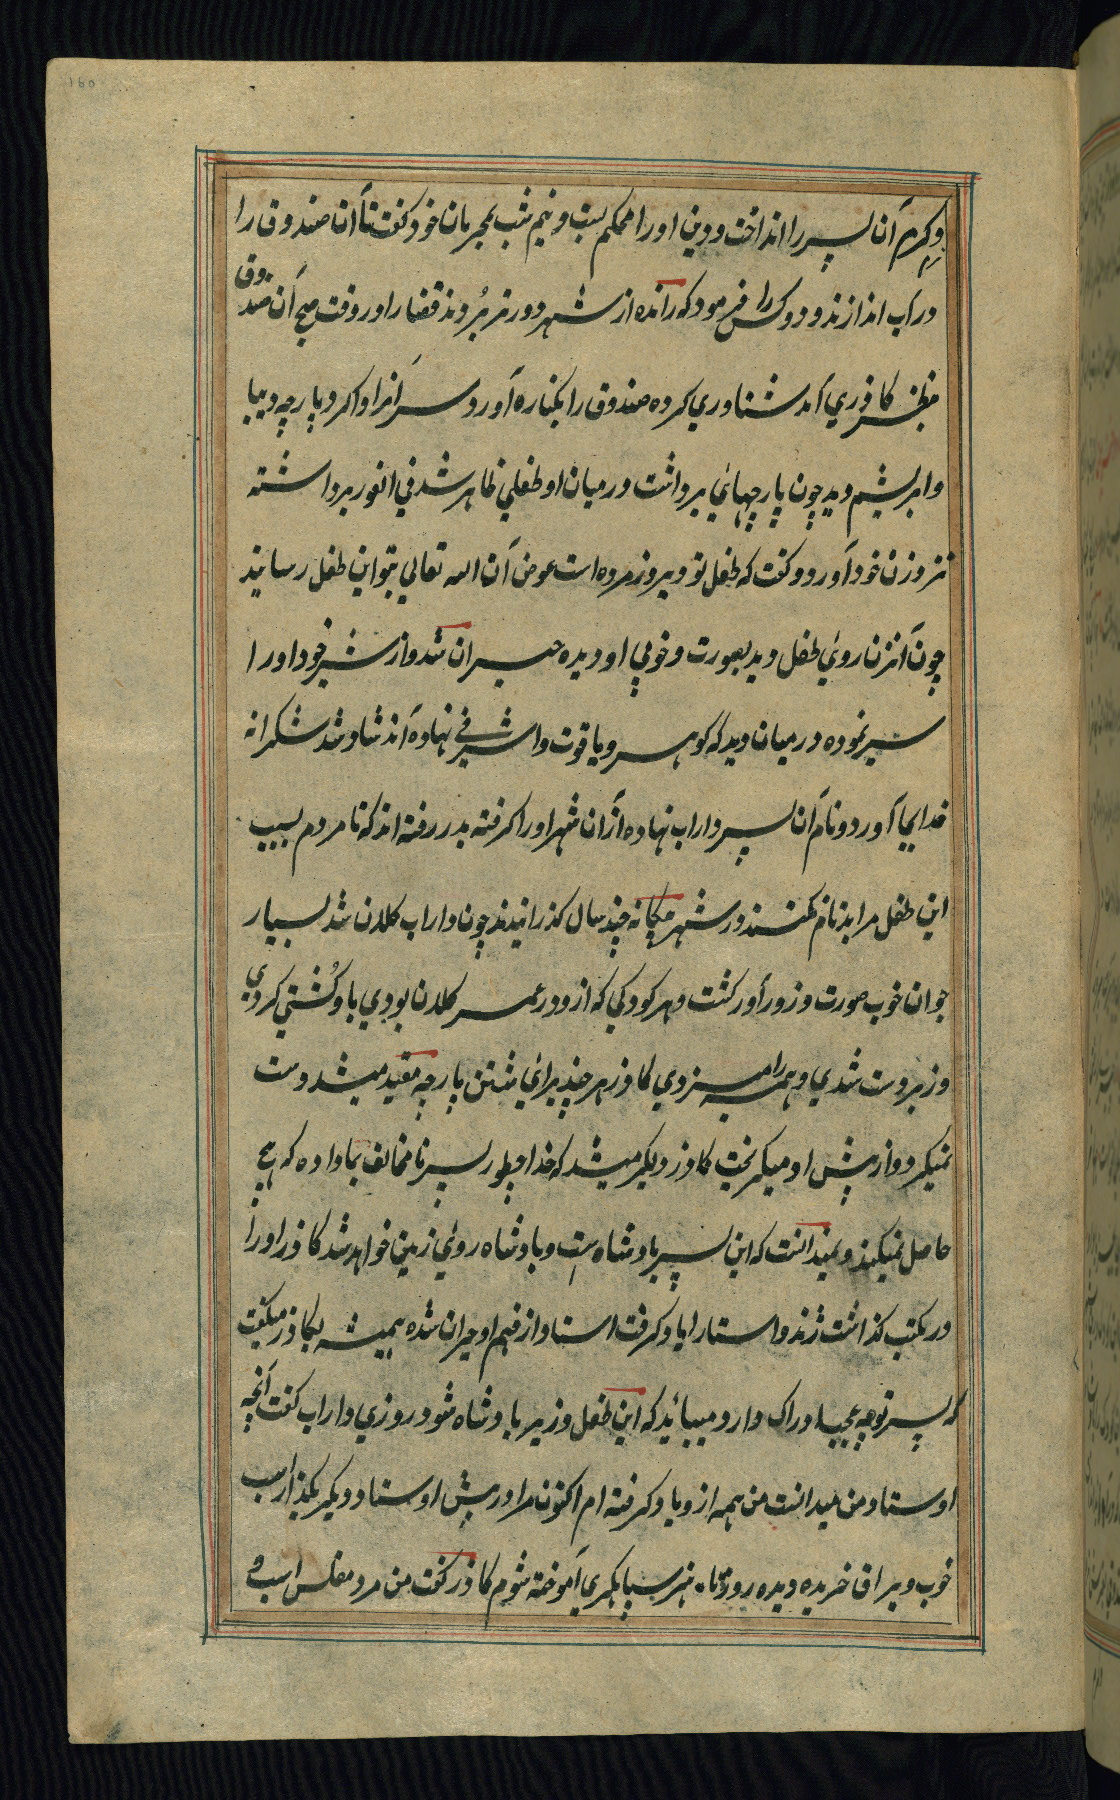 وکرم آن پسر را انداخت و دهن او را محکم بست و نیم شب بمحرمان خود گفت تا آن صندوق را
در آب اندازند و دو کس را فرمود که رانده از شهر دورتر بُروند قضا را در وقت صبح آن صندوق
کاذری آمد شناوری کرده صندوق را بکناره آورد سر آنرا واکرد پارچه دیبا
و ابریشم دید چون پارچهائی برداشت در میان او طفلی ظاهر شد فی الفور برداشته
نزد زن خود آورد و گفت که طفل تو دیروز مرده است عوض آن الله تعالی بتو این طفل رسانید
چون آنزن روئی طفل دید بصورت و خوبی او دیده حیران شد و از شیر خود او را
سیر نموده در میان دید که گوهر و یاقوت و اشرفی نهاده اند شاد شد شکرانه
خدایا آورد و نام آن پسر داراب نهاده از آن شهر او را گرفته بدر رفته اند که تا مردم بسبب
این طفل مرا بدنام نکنند در شهر بیگانه چند سال گذرانیدند چون داراب کلان شد بسیار
جوان خوب صورت و زور آور گشت و هر کودکی که ازو در عمر کلان بودی با او کُشتی کردی
و زبردست شدی و همه را میزدی کاذر هر چند برائی شستن پارچه مقید میشد دست
نمیکرد و از پیش او میگریخت کاذر دلگیر میشد که خدا چطور پسر نا مخالف بما داده که هیچ
حاصل نمیکند و نمیدانست که این پسر بادشاه ست و بادشاه روئی زمین خواهد شد کاذر او را
در مکتب گذاشت ژند و استا را یاد گرفت استاد از فهم او حیران شده همیشه بکاذر میگفت
که پسر تو چه عجب ادراک دارد میباید که این طفل وزیر بادشاه شود روزی داراب گفت آنچه
اوستاد من میدانست من همه ازو یاد گرفته ام اکنون مرا در پیش اوستاد دیگر بگذار اسب
خوب و یراق خریده دیده روز تا هنر سپاهگری آموخته شوم کاذر گفت من مرد مفلس اسب